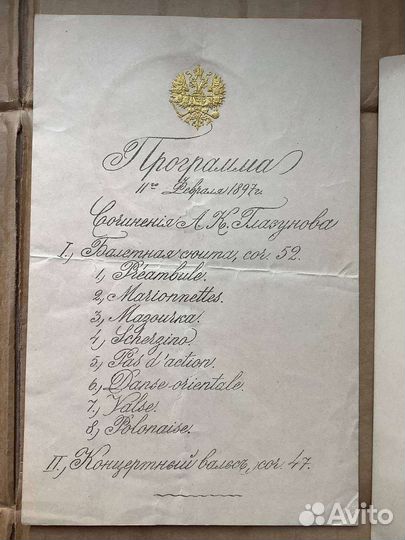 Программа
11го Февраля 1897г.
Сочиненія А. К. Глазунова
I., Балетная сюита, соч. 52.
1, Préambule.
2, Marionnettes.
3, Мазурка.
4, Scherzino.
5, Pas d'action.
6, Danse orientale.
7, Valse.
8, Polonaise.
II., Концертный вальсъ, соч. 47.
Avito